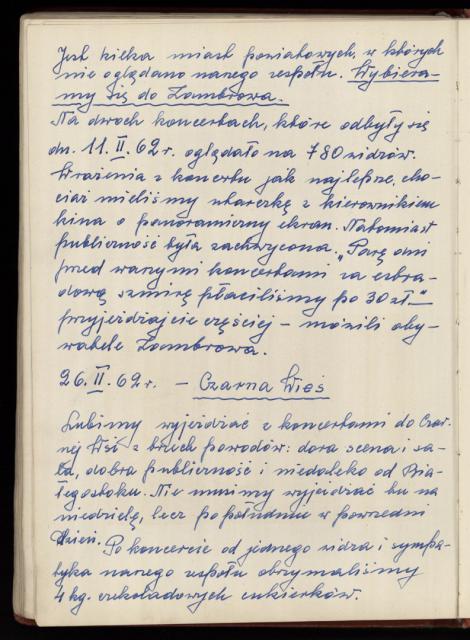 Jest kilka miast powiatowych, w których
nie oglądano naszego zespołu. Wybiera-
my się do Zambrowa.
Na dwóch koncertach, które odbyły się
dn. 11.II.62 r. oglądało na 780 widzów.
Wrażenia z koncertu jak najlepsze, cho-
ciaż mieliśmy utarczkę z kierownikiem
kina o panoramiczny ekran. Natomiast
publiczność była zachwycona. „Parę dni
przed waszymi koncertami za estra-
dową szmirę płaciliśmy po 30 zł.”
przyjeżdżajcie częściej – mówili oby-
watele Zambrowa.
26.II.62 r. – Czarna Wieś
Lubimy wyjeżdżać z koncertami do Czar-
nej Wsi z trzech powodów: dora scena i sa-
la, dobra publiczność i niedaleko od Bia-
łegostoku. Nie musimy wyjeżdżać tu na
niedzielę, lecz po południu w powszedni
dzień.
Po koncercie od jednego widza i sympa-
tyka naszego zespołu otrzymaliśmy
4 kg. czekoladowych cukierków.